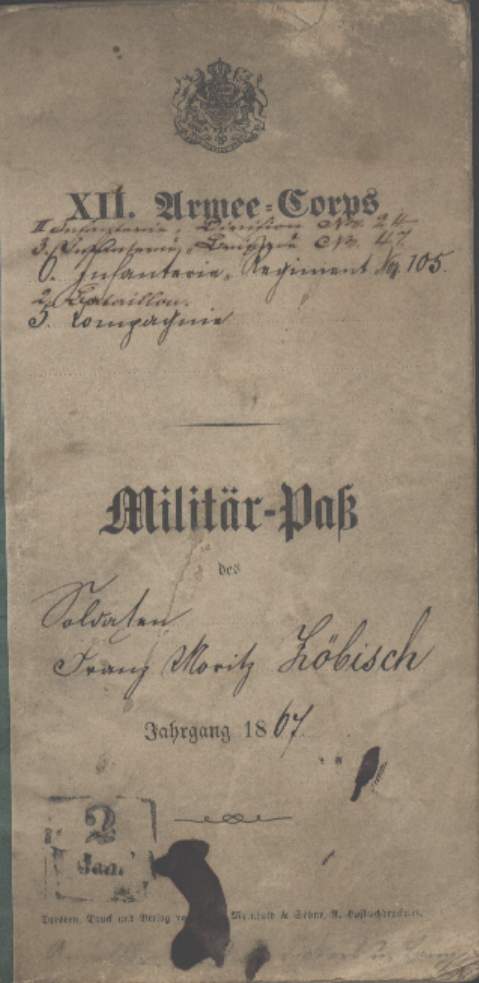 XII. Armee=Corps
II Infanterie, Division No. 24
3. Infanterie, Brigade No. 47
6. Infanterie, Regiment No. 105.
2. Bataillon.
5. Compagnie
Militär-Paß
des
Soldaten
Franz Moritz Zöbisch
Jahrgang 1867
2
Jan.
Dresden, Druck und Verlag & Söhne, K. Hofbuchdruckerei.